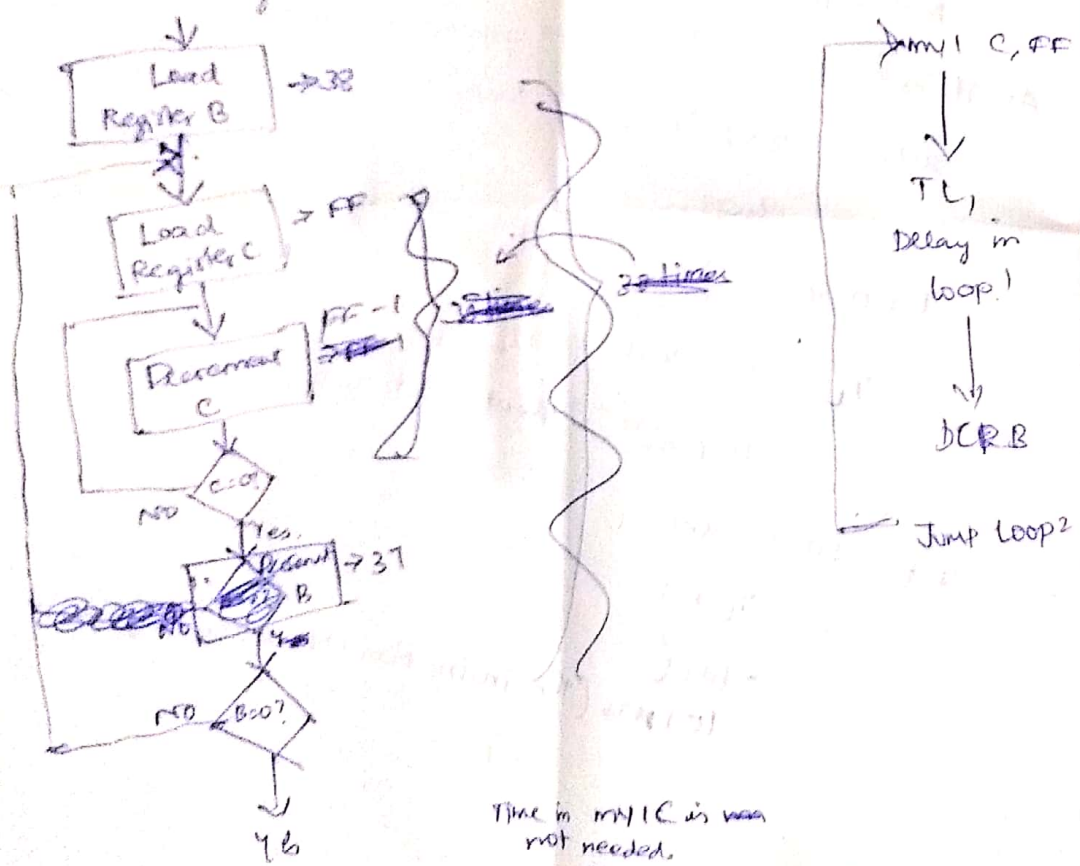 Load
Register B
→38
Load
Register C
→ FF
FF-1
Decrement
C
C=0?
NO
Yes.
Decrement
B
→37
NO
B=0?
NO
38 times
MVI C, FF
TL,
Delay in
loop1
DCR B
Jump Loop2
Time in MVI C is
not needed.